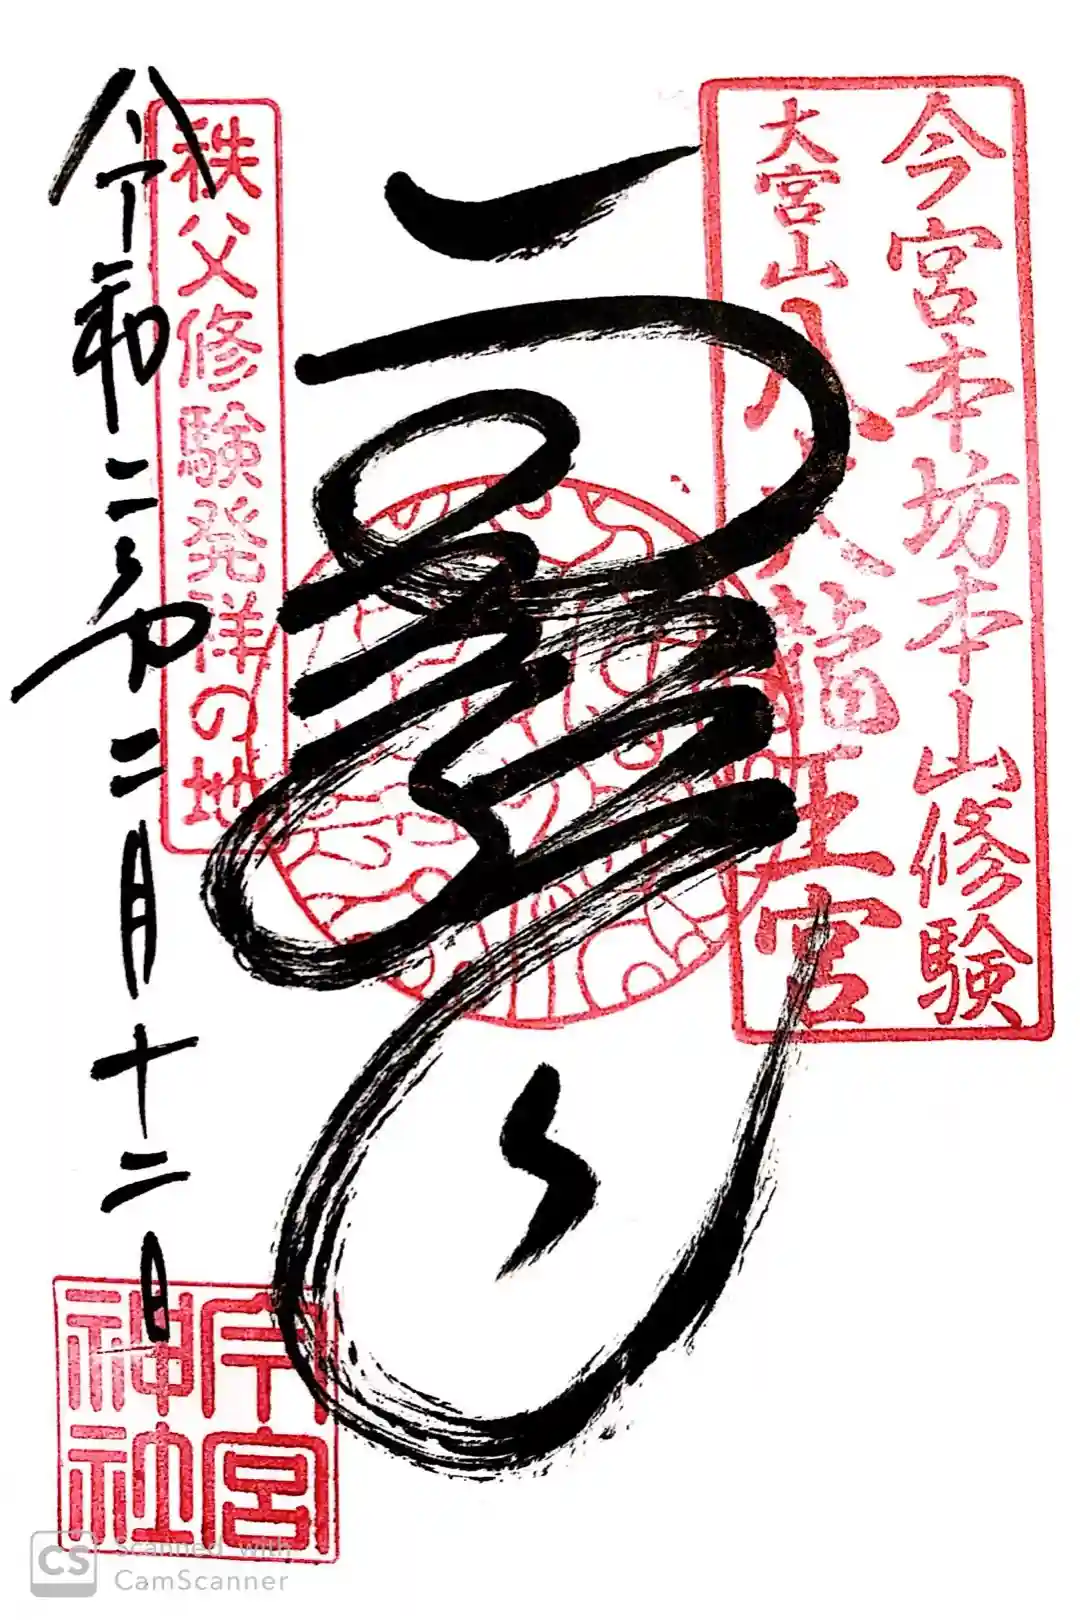 今宮本坊本山修験
大宮山八大龍王宮
龍
秩父修験発祥の地
令和二年二月十二日
今宮
神社
CS Scanned with
CamScanner